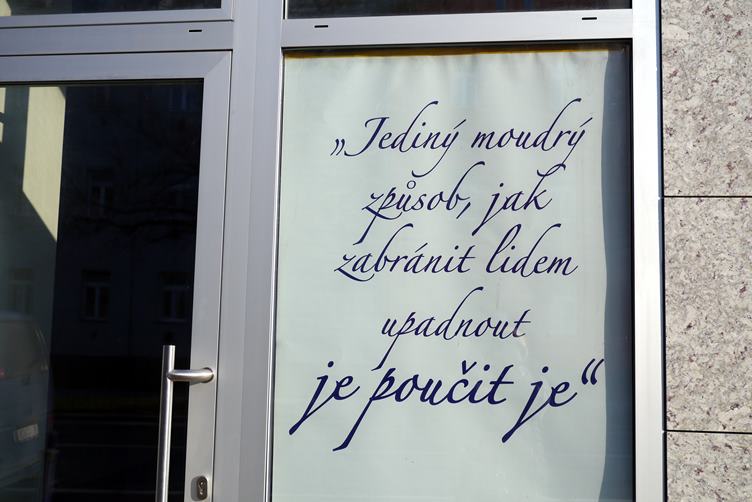 „Jediný moudrý
způsob, jak
zabránit lidem
upadnout
je poučit je“